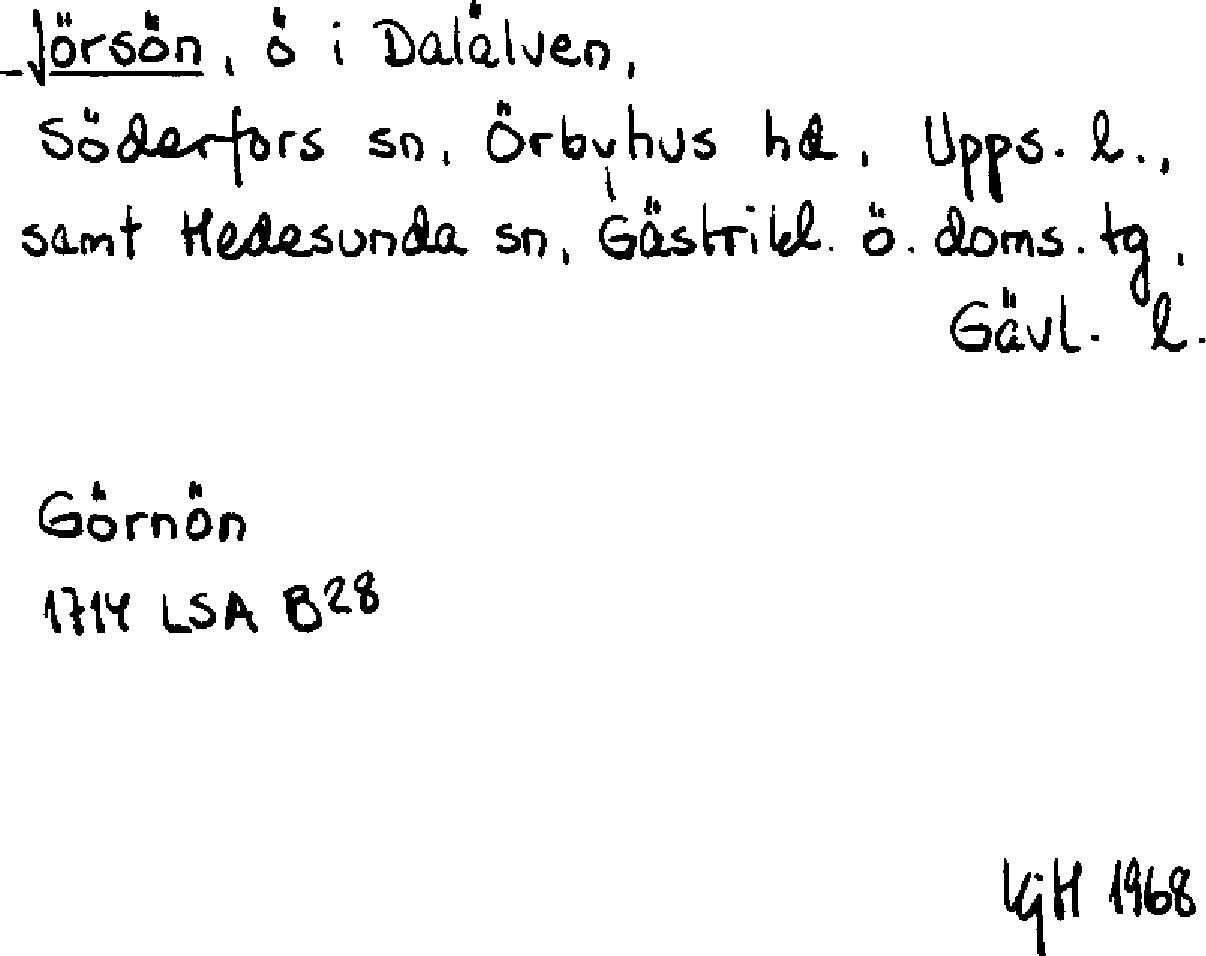 Jörsön, ö i Dalälven,
Söderfors sn, Örbyhus hd, Upps. l.,
samt Hedesunda sn, Gästrikl. ö. doms. tg,
Gävl. l.
Görnön
1714 LSA B28
1968